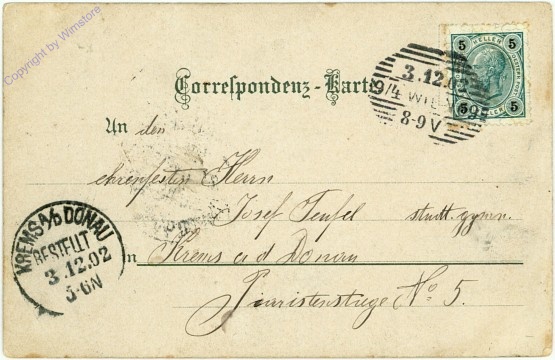 Copyright by Wimstore
5 HELLER 5
5 HELLER 5
3.12.02
9/4 WIEN
8-9V
Correspondenz-Karte
An den
ehrenfesten Herrn
Josef Teufel stud. gymn.
in Krems a d Donau
Piaristenstiege No 5.
KREMS A/D DONAU
BESTELLT
3.12.02
5-6N